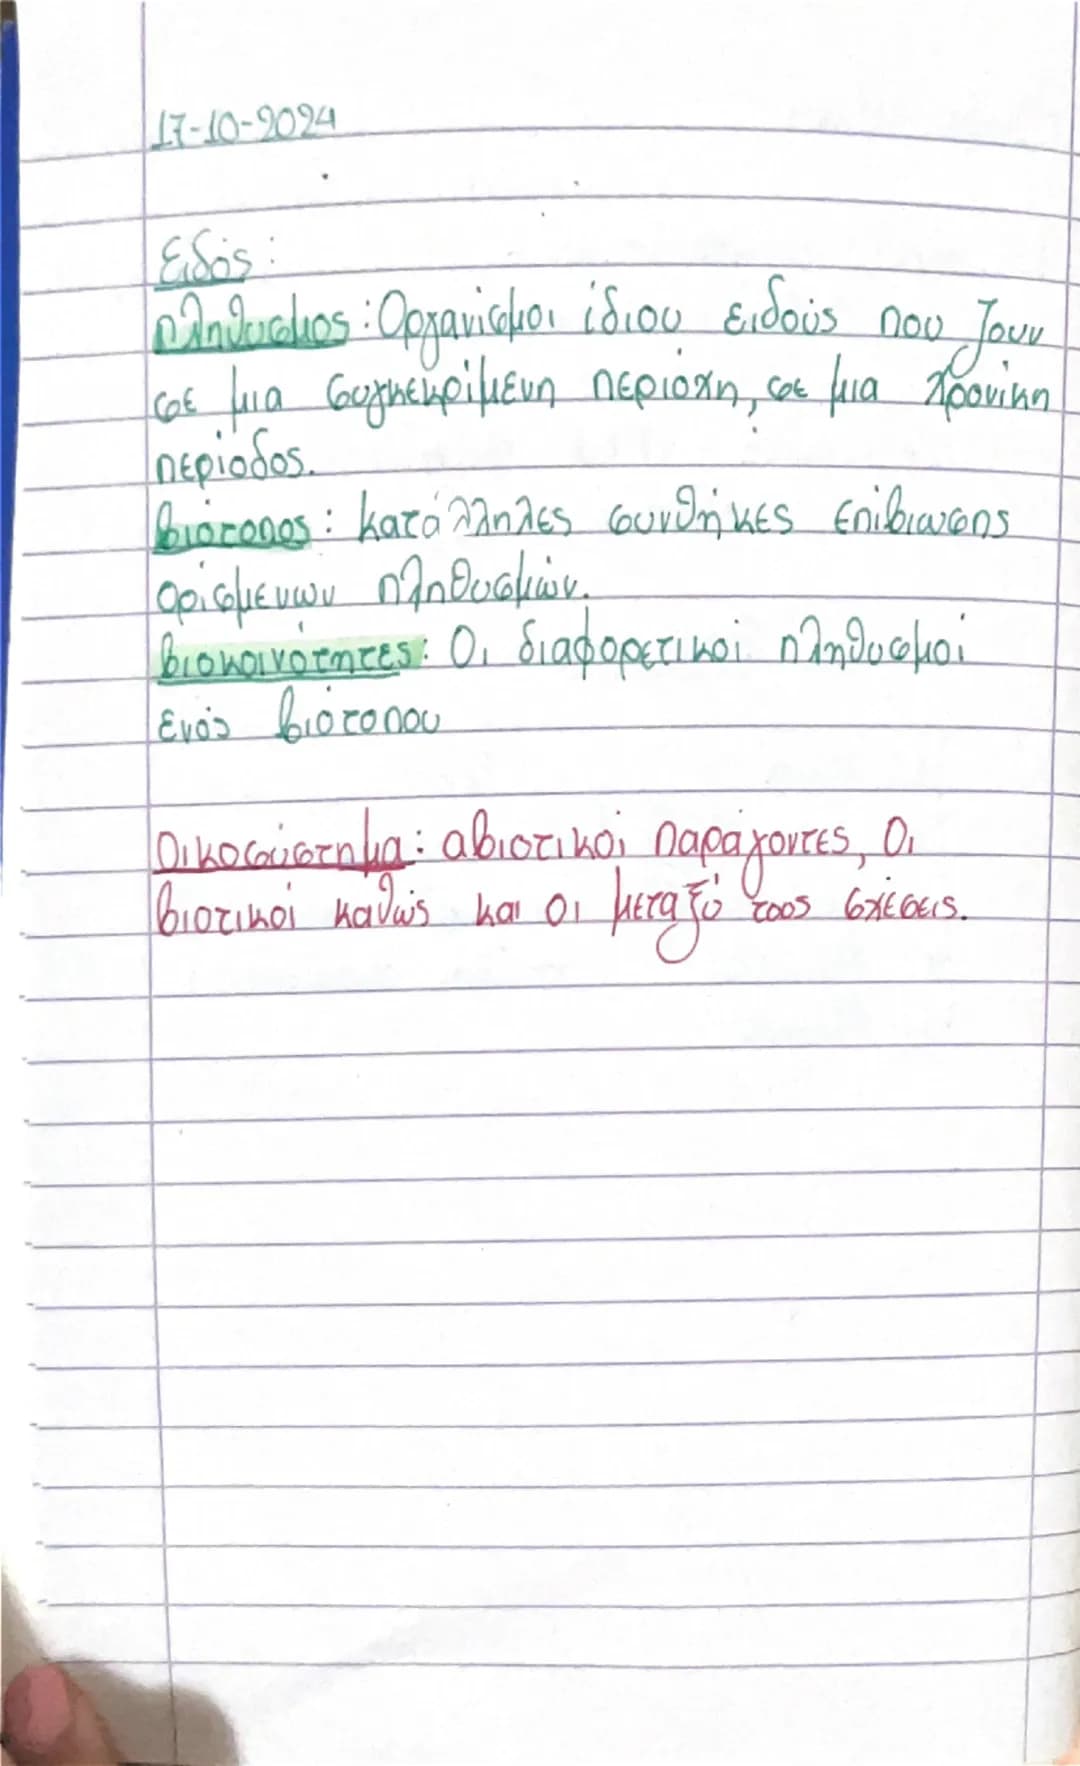 17-10-2024
Ειδός:
πληθυσμος: Οργανίσμοι ίδιου ειδούς που ζουν
σε μια συγκεκρίμενη περιόχη, σε μια χρονίκη
περίοδος.
βιότοπος: κατάλληλες συνθήκες επίβιωσης
ορίσμενων πληθυσμών.
βιοκοινότητες: Οι διαφορετικοί πληθυσμοί
ενός βιότοπου
Οικοσύστημα: αβιοτικοί παράγοντες, Οι
βιοτικοί καθώς και οι μεταξύ τους σχέσεις.